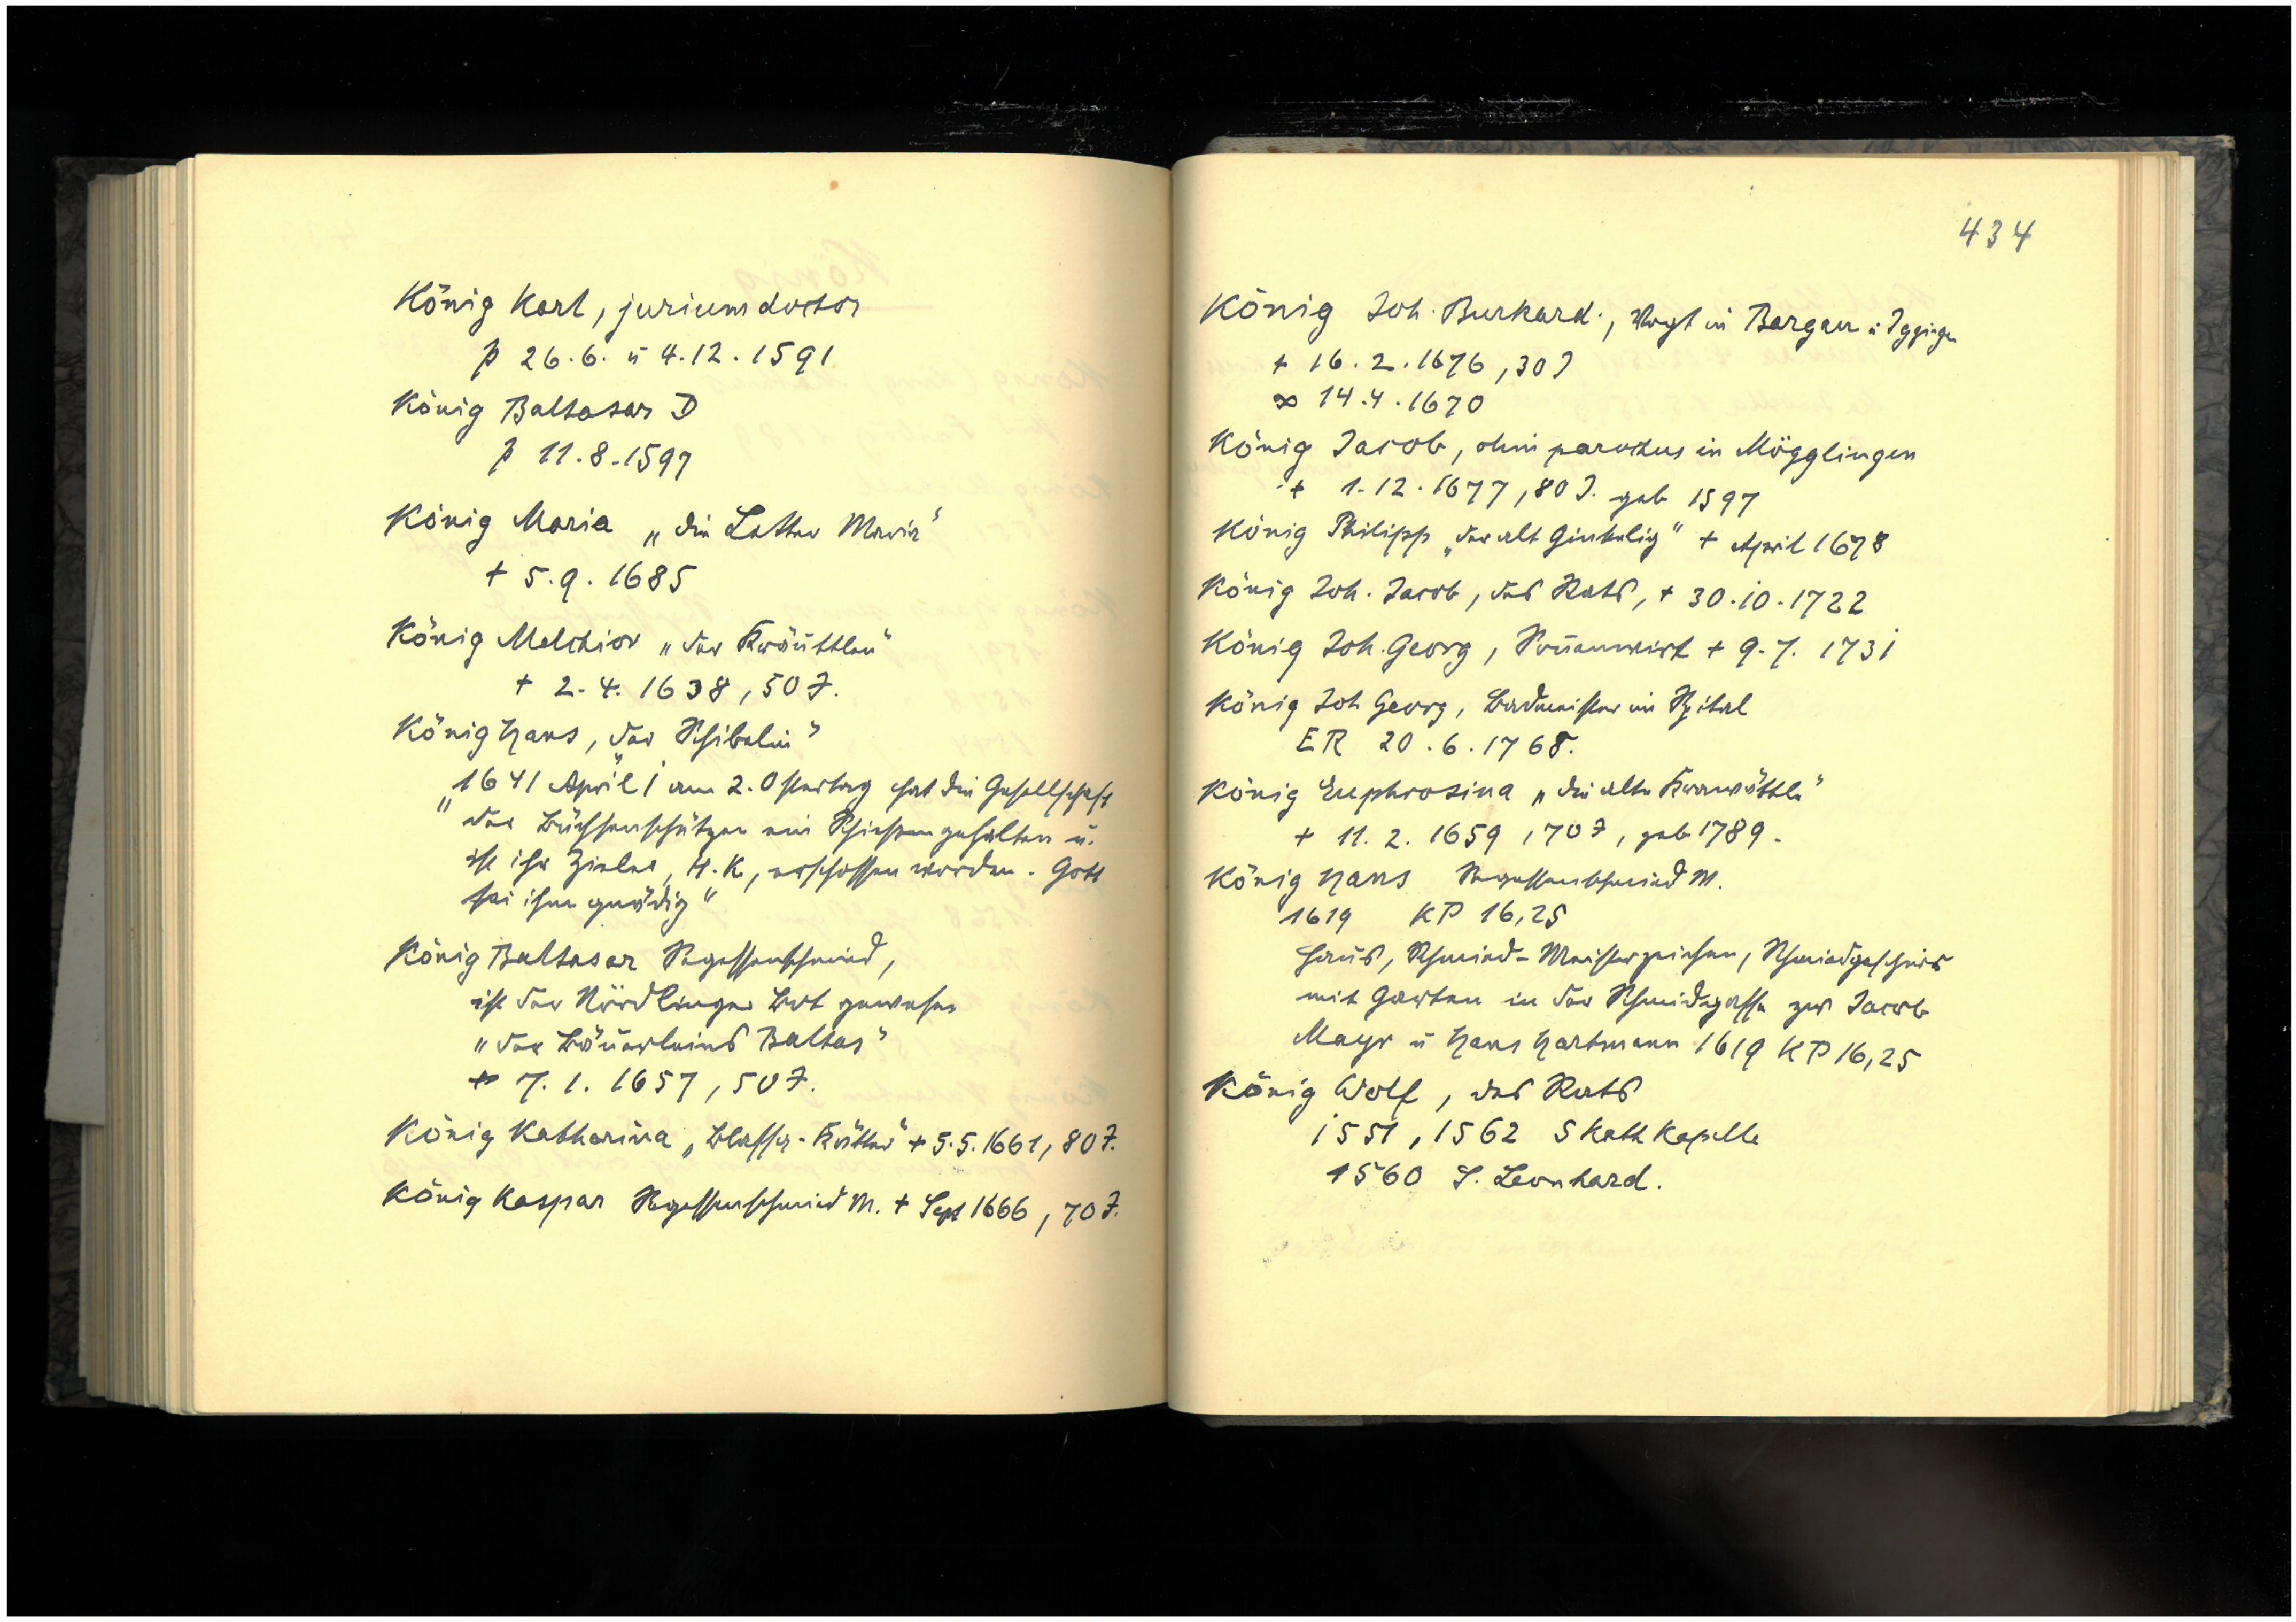 König Karl, jurium doctor
p 26.6. ü 4.12.1591
König Baltasar D
p 11.8.1597
König Maria „die Letter Maria"
+ 5.9.1685
König Melchior „der Kräuttlen"
+ 2.4.1638, 50 J.
König Hans, „der Schibelin"
„1641 April 1 am 2. Ostertag hat die Gesellschaft
der Büchsenschützen ein Schiessen gehalten u.
ist ihr Zieler, H.K, erschossen worden. Gott
sei ihm gnädig"
König Baltasar Segessenschmied,
ist der Nördlinger Bot gewesen
„der Bäuerleins Baltas"
+ 7.1.1657, 50 J.
König Katharina „Blasser-Kätter" + 5.5.1661, 80 J.
König Kaspar Segessenschmied M. + Sept 1666, 70 J.
434
König Joh. Burkard., Vogt in Bargau ü Iggingen
+ 16.2.1676, 30 J
∞ 14.4.1670
König Jacob, olim parochus in Mögglingen
+ 1.12.1677, 80 J. geb 1597
König Philipp „der alt Ginkelig" + April 1678
König Joh. Jacob, des Rats, + 30.10.1722
König Joh. Georg, Sonnenwirt + 9.7.1731
König Joh Georg, Badmeister im Spital
ER 20.6.1768.
König Euphrosina „die alte"
+ 11.2.1659, 70 J, geb 1789.
König Hans Segessenschmied M.
1619 KP 16,25
Haus, Schmied-Meisterzeichen, Schmiedgeschirr
mit Garten in der Schmidgasse zw Jacob
Mayr ü Hans Hartmann 1619 KP 16,25
König Wolf, des Rats
1551, 1562 S Kath Kapelle
1560 S. Leonhard.